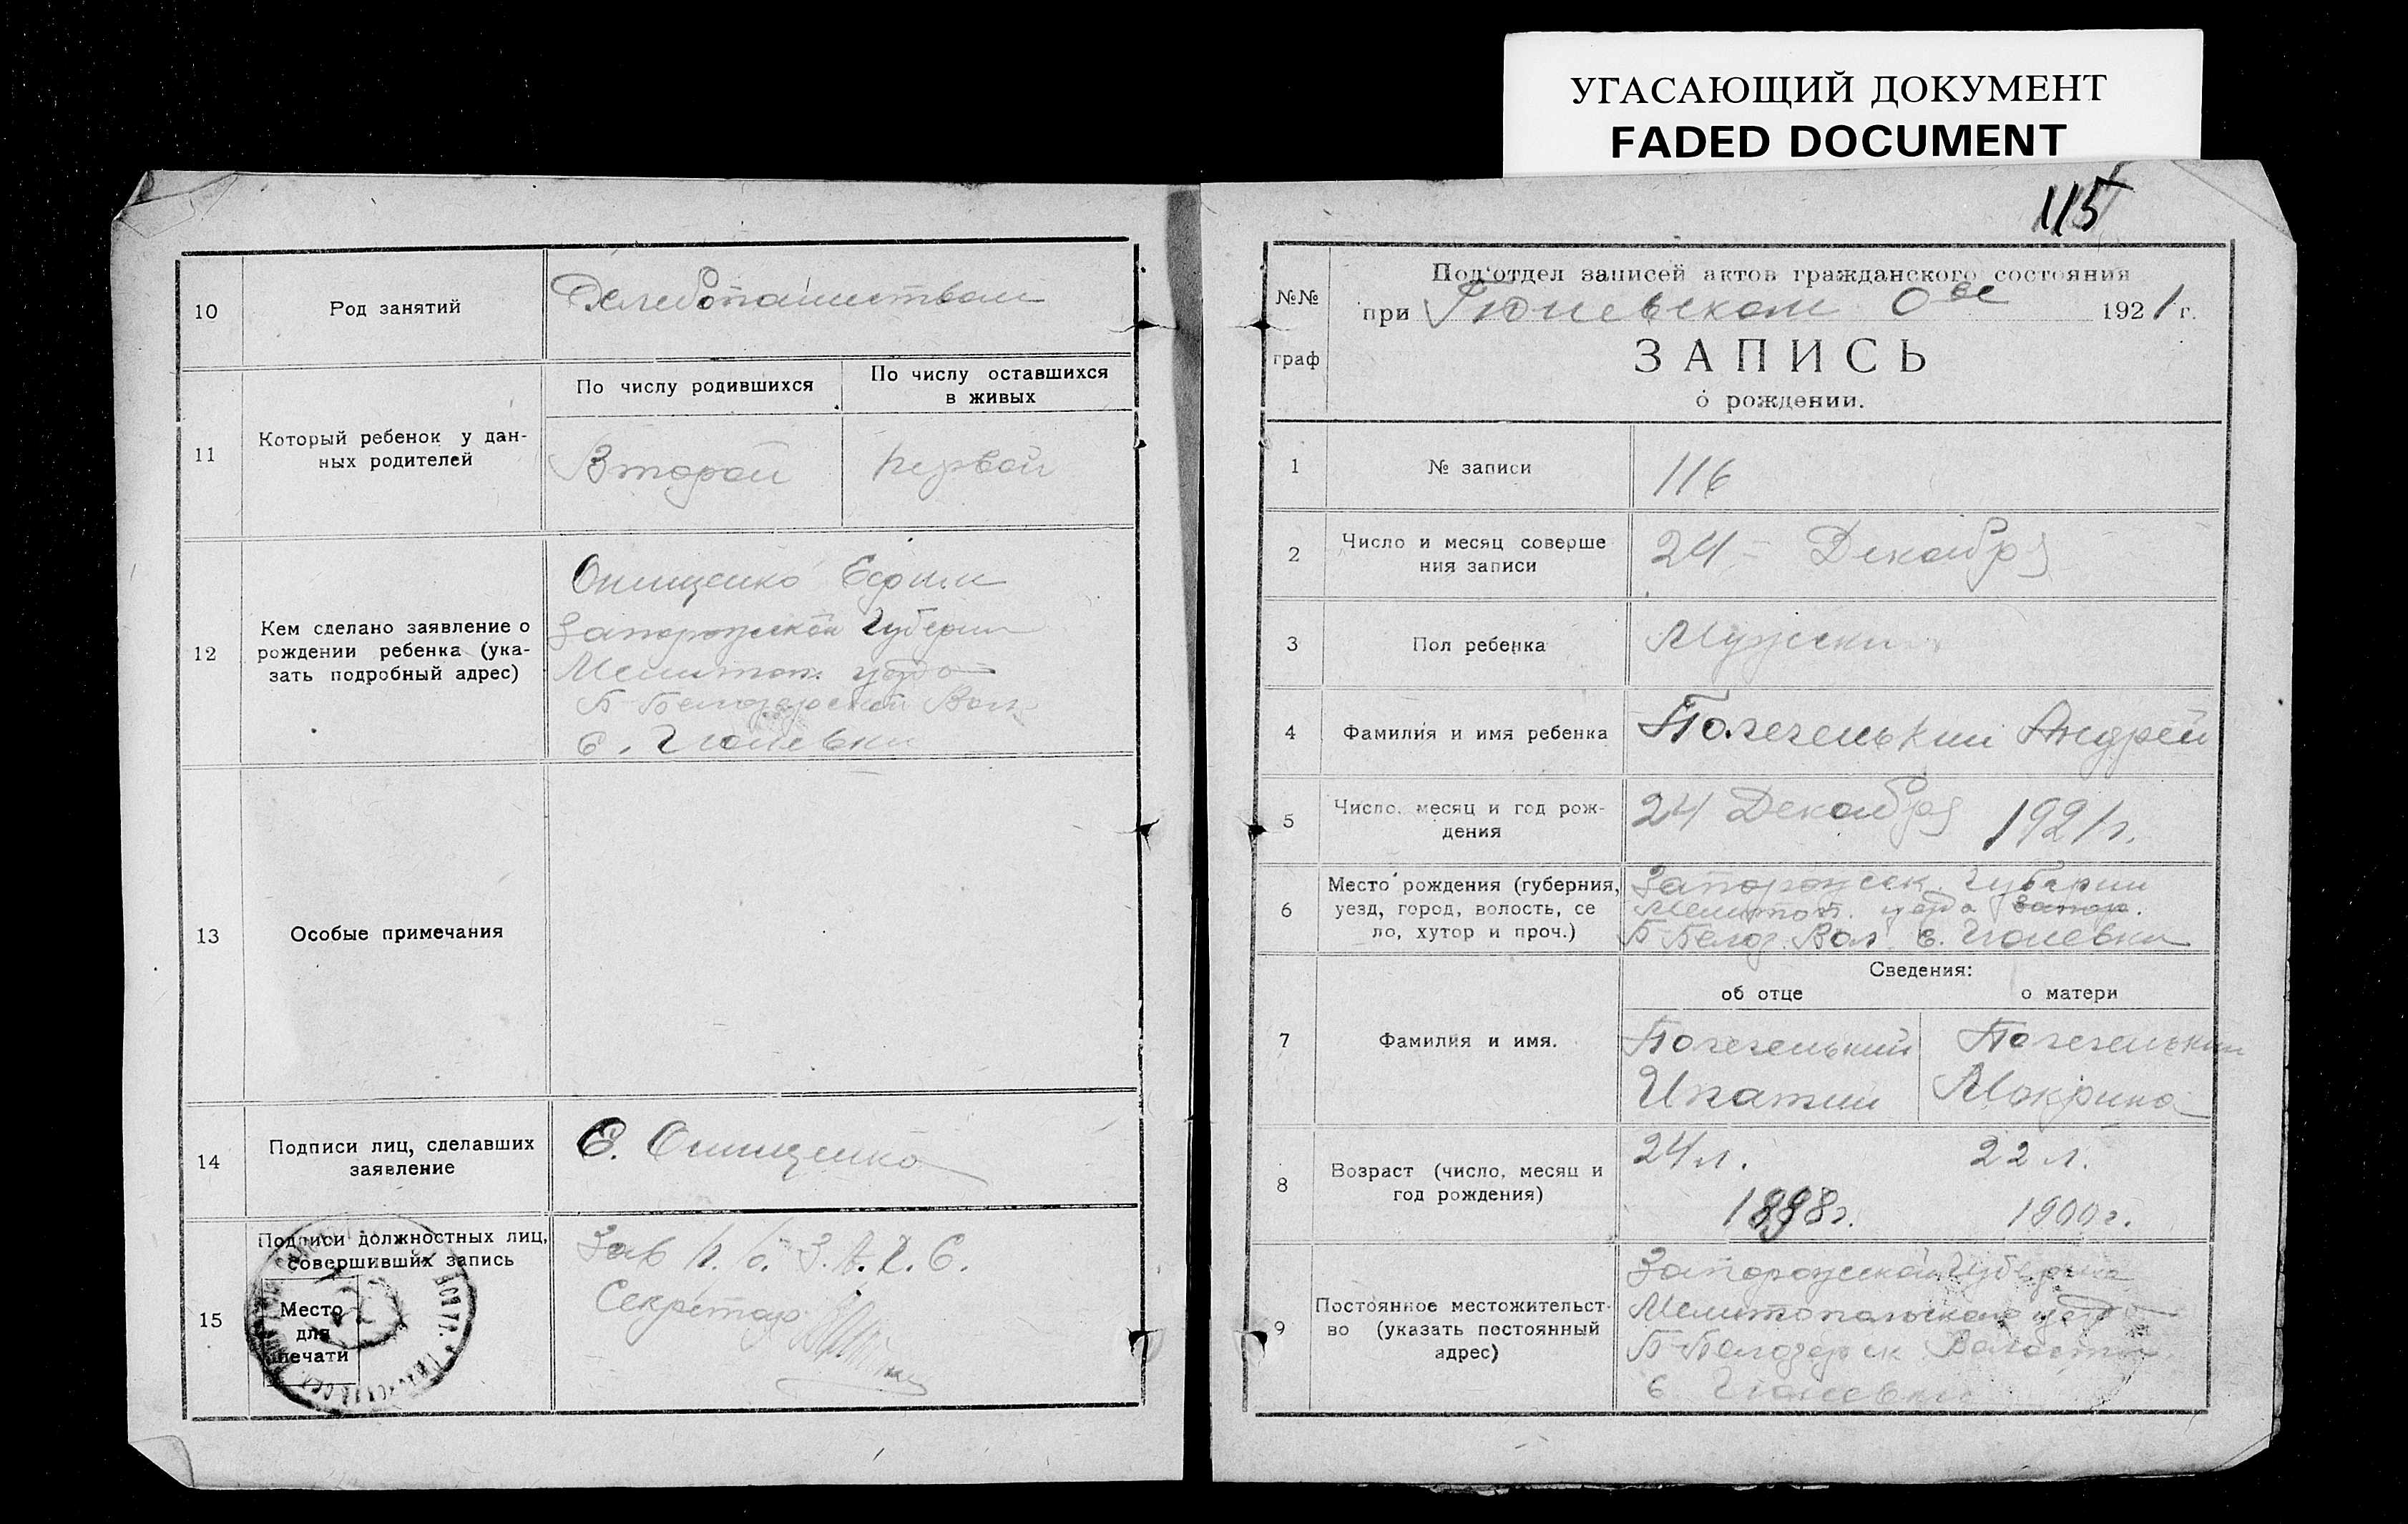 УГАСАЮЩИЙ ДОКУМЕНТ
FADED DOCUMENT
10
Род занятий
11
Который ребенок у дан-
ных родителей
По числу родившихся
По числу оставшихся
в живых
Второй
первой
12
Кем сделано заявление о
рождении ребенка (ука-
зать подробный адрес)
Онищенко Ефим
Запорожской Губернии
Мелитоп. уезда
Б-Белозерской Вол.
с. Гюневки
13
Особые примечания
14
Подписи лиц, сделавших
заявление
Е. Онищенко
15
Подписи должностных лиц,
совершивших запись
Место
для
печати
Зав п. о. З.А.Г.С.
Секретарь
115
№№
граф
Под'отдел записей актов гражданского состояния
при Гюневском 1921 г.
ЗАПИСЬ
о рождении.
1
№ записи
116
2
Число и месяц соверше
ния записи
24 - Декабря
3
Пол ребенка
Мужски
4
Фамилия и имя ребенка
Андрей
5
Число, месяц и год рож-
дения
24 Декабря 1921 г.
6
Место рождения (губерния,
уезд, город, волость, се
ло, хутор и проч.)
Запорожск. Губернии
Мелитоп. уезда Запор.
Б-Белоз. Вол. с. Гюневки
Сведения:
об отце
о матери
7
Фамилия и имя.
Ипатий
Макрина
8
Возраст (число, месяц и
год рождения)
24 л.
22 л.
1898г.
1900 г.
9
Постоянное местожительст-
во (указать постоянный
адрес)
Запорожской Губернии
Мелитопольского уезда
Б-Белозерск Волости
с. Гюневки